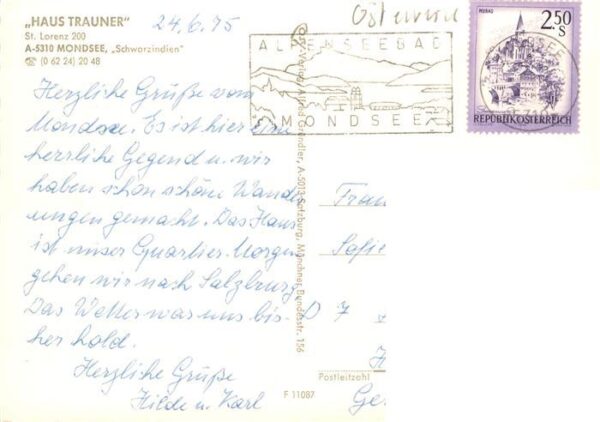 „HAUS TRAUNER"
St. Lorenz 200
A-5310 MONDSEE, „Schwarzindien"
☎ (0 62 24) 20 48
24.6.75
Österreich
ALPENSEEBAD
MONDSEE
2.50
S
REPUBLIK ÖSTERREICH
Herzliche Grüße vom
Mondsee. Es ist hier eine
herrliche Gegend u. wir
haben schon schöne Wander
ungen gemacht. Das Haus
ist unser Quartier. Morgen
gehen wir nach Salzburg.
Das Wetter war uns bis-
her hold.
Herzliche Grüße
Hilde u. Karl
Verlag Alfred Gründler, A-5013 Salzburg, Münchner Bundesstr. 156
F 11087
Frau
Sofie
D 7
Postleitzahl